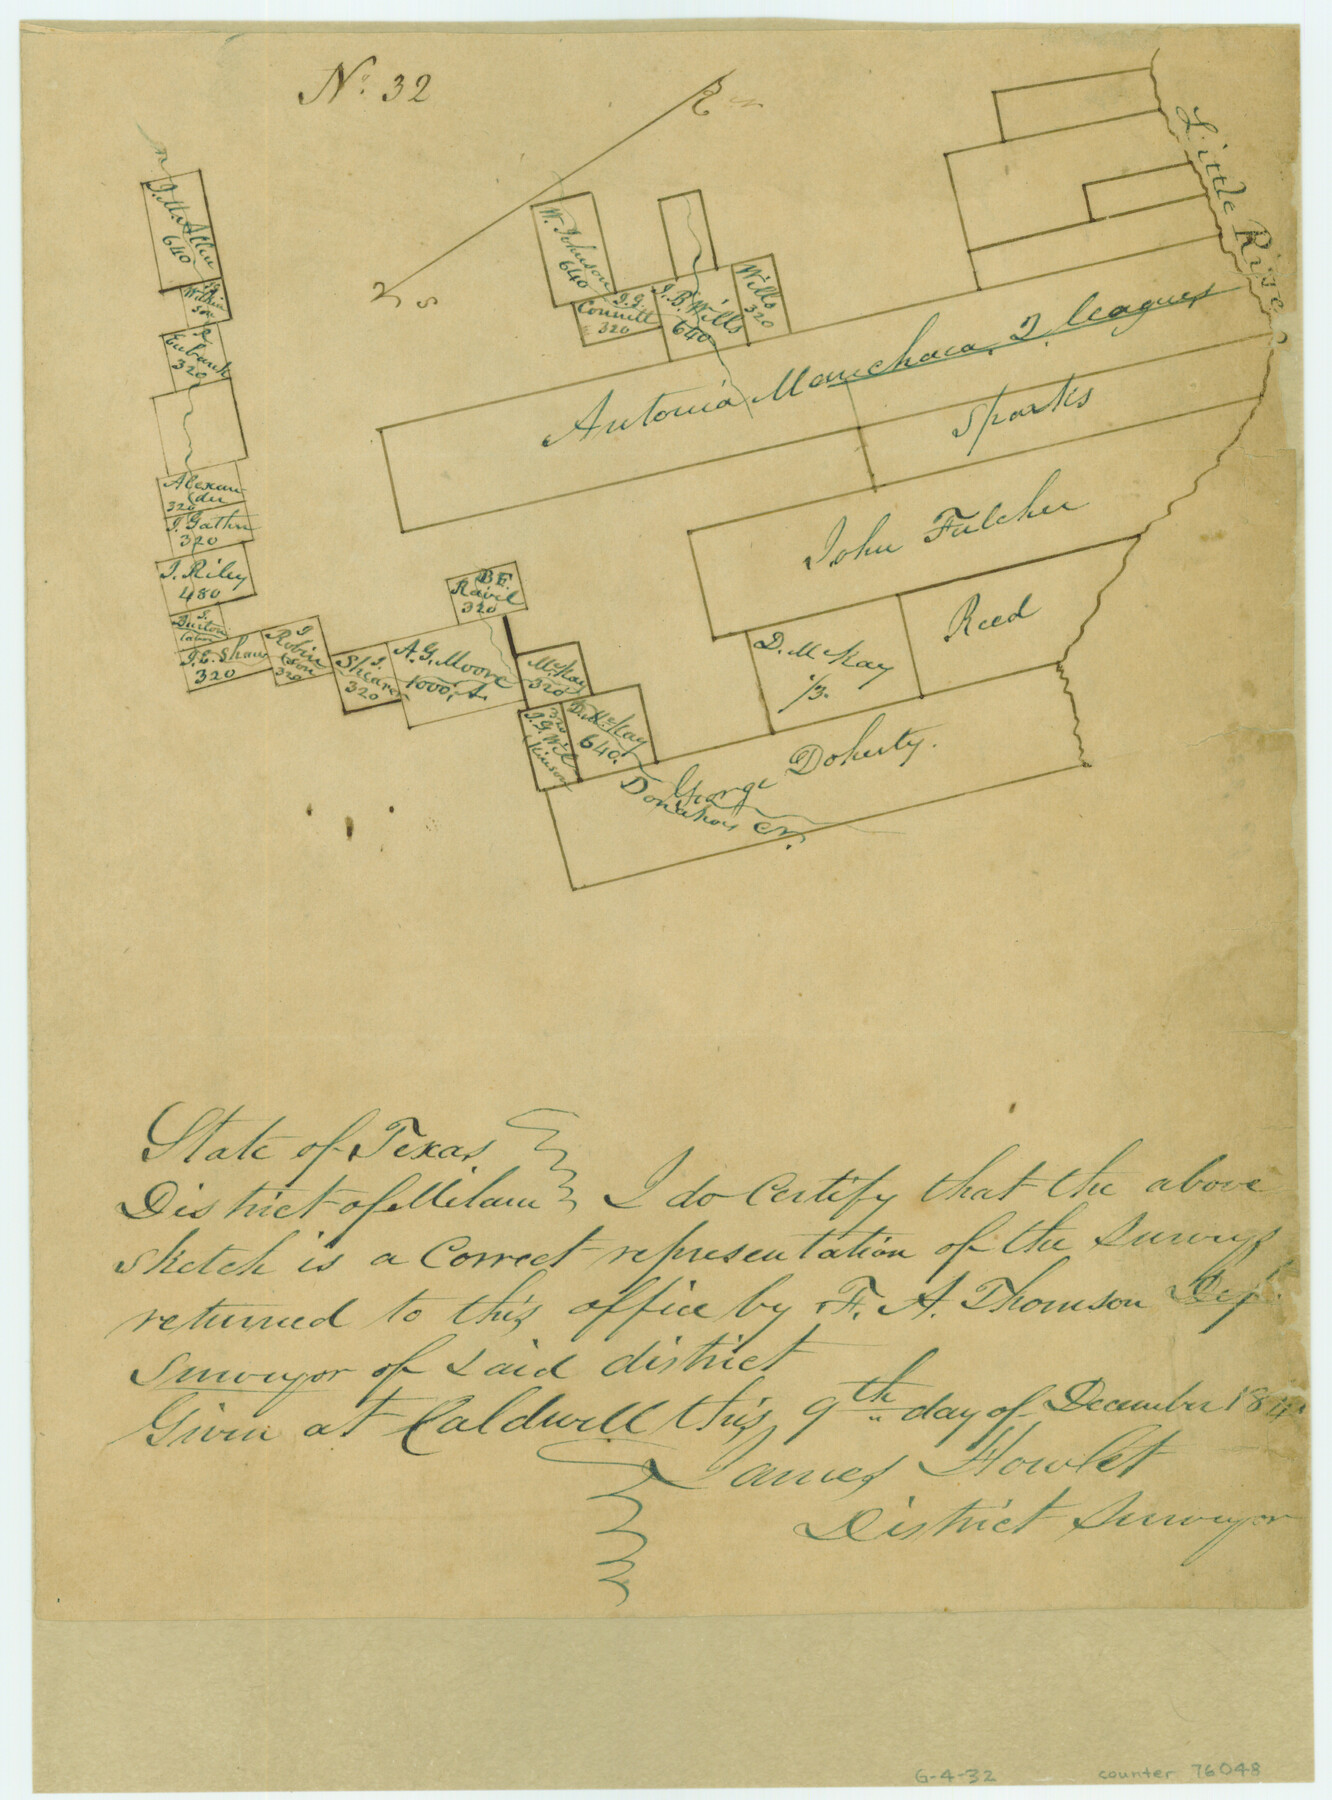 No. 32
Little River
S
J. McAllen
640
J. G.
Wilkin
son
Eubank
320
Alexan
der
320
J. Gather
320
J. Riley
480
J.
Burton
labor
J. E. Shaw
320
J
Robin
son
320
J.
Shearer
320
A. G. Moore
1000, A.
B F.
Ravil
320
McKay
320
320
J. G. Wil
kinson
D. McKay
640.
W. Johnson
640
J. G.
Connell
320
J. B. Wills
640
Wills
320
Antonia Manchaca, 2, leagues
Sparks
John Fulcher
D. McKay
1/3.
Reed
George Doherty.
Donahoes Cr.
State of Texas
District of Milam I do Certify that the above
sketch is a Correct representation of the Surveys
returned to this office by F. A. Thomson Dep.
surveyor of said district
Given at Caldwell this 9th day of December 184
James Howlet
District Surveyor
G-4-32
counter 76048